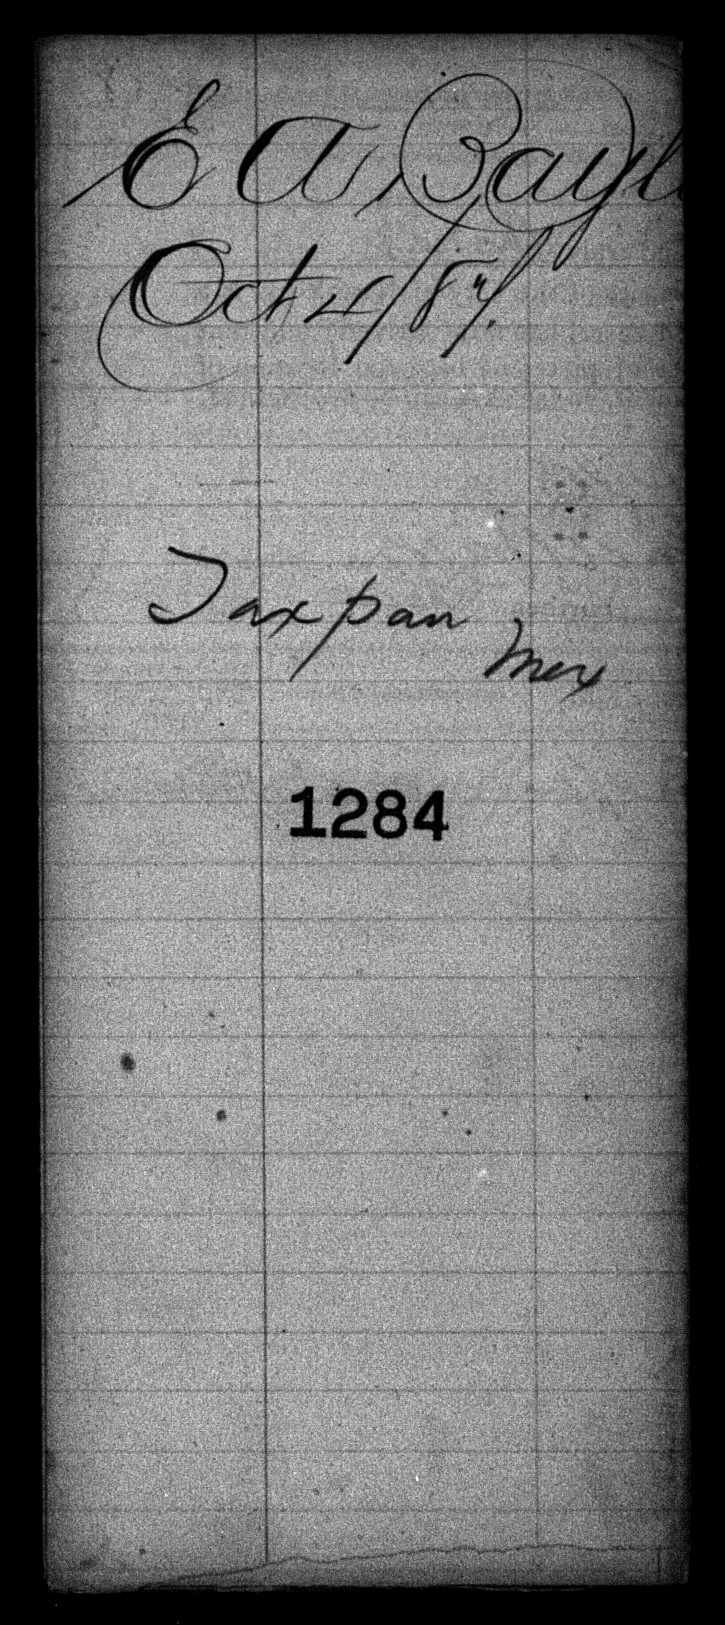 E A Bayl
Oct 4/87.
Taxpan
Mex
1284